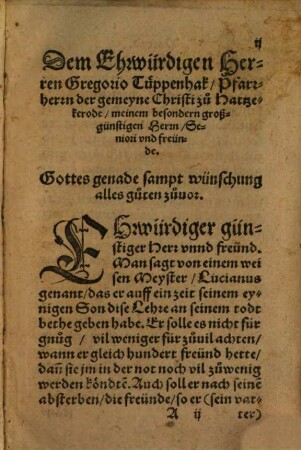 ij
Dem Ehrwürdigen Her-
ren Gregorio Tüppenhak / Pfarr-
herrn der gemeyne Christi zů Hartze-
kerode / meinem besondern groß-
günstigen Herrn / Se-
niori vnd freün-
de.
Gottes genade sampt wünschung
alles gůten zůuor.
EHrwürdiger gün-
stiger Herr vnnd freünd.
Man sagt von einem wei
sen Meyster / Lucianus
genant / das er auff ein zeit seinem ey-
nigen Son dise Lehre an seinem todt
bethe geben habe. Er solle es nicht für
gnůg / vil weniger für zůuil achten /
wann er gleich hundert freünd hette /
dañ sie jm in der not noch vil zůwenig
werden köndtē. Auch soll er nach seinē
absterben / die freünde / so er (sein vat-
A ij ter)